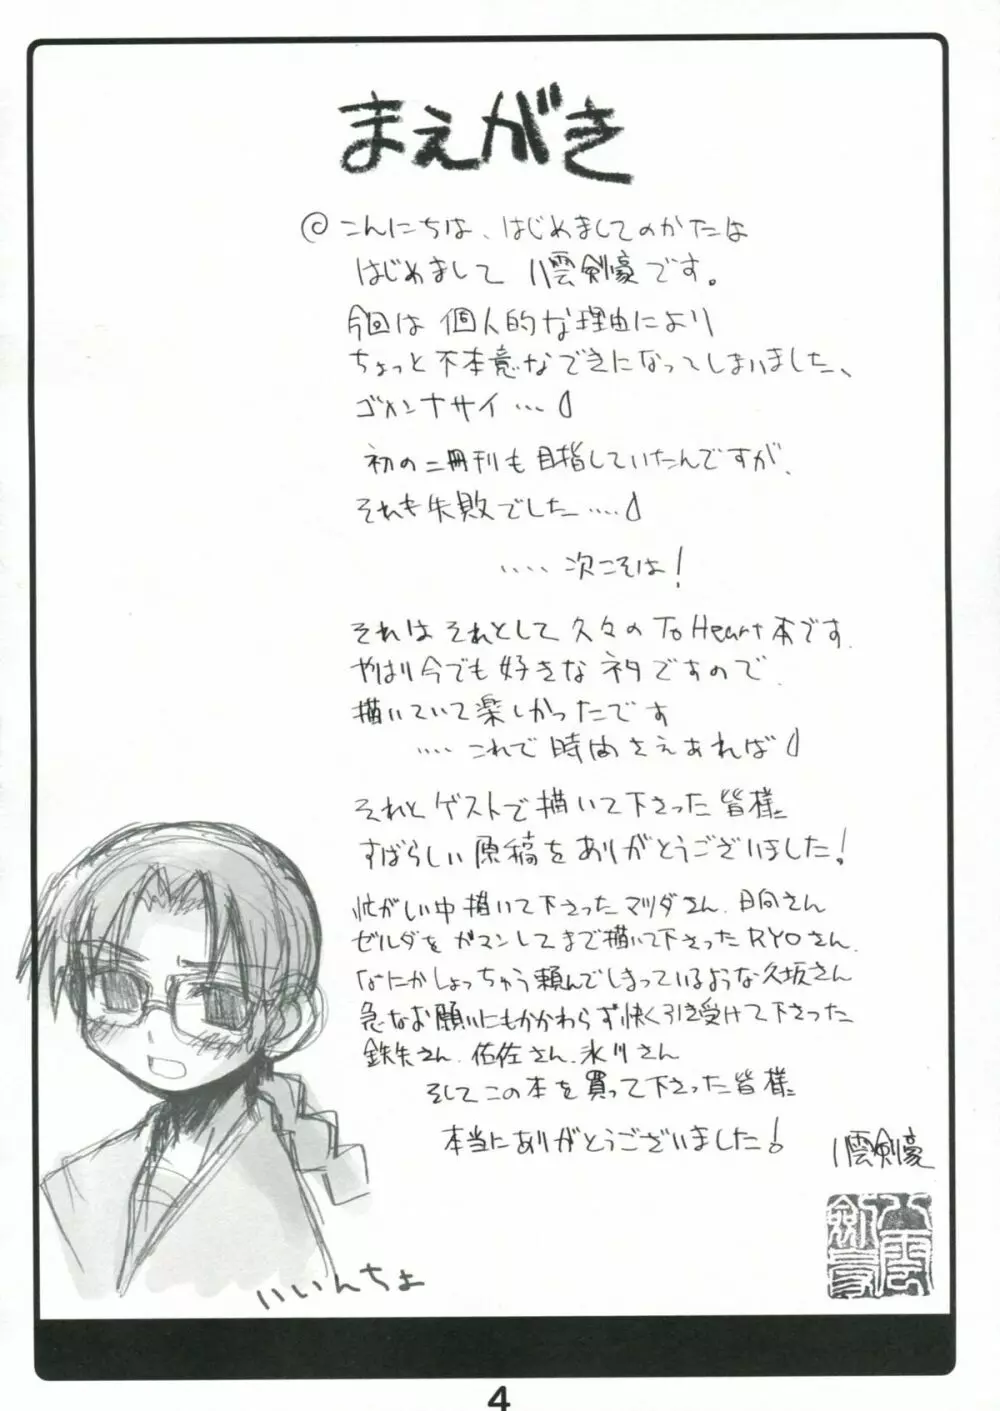 まえがき
◎こんにちは、はじめましてのかたは
はじめまして 八雲剣豪です。
今回は個人的な理由により
ちょっと不本意なできになってしまいました、
ゴメンナサイ…
初の二冊刊も目指していたんですが、
それも失敗でした….
….次こそは!
それはそれとして久々のTo Heart本です.
やはり今でも好きなネタですので、
描いていて楽しかったです
….これで時間さえあれば
それとゲストで描いて下さった皆様
すばらしい原稿をありがとうございました!
忙がしい中描いて下さったマツダさん、日向さん
ゼルダをガマンしてまで描いて下さったRYOさん、
なにかしょっちゅう頼んでしまっているような久坂さん
急なお願いにもかかわらず快く引き受けて下さった
鉄矢さん、佑佐さん、氷川さん
そしてこの本を買って下さった皆様
本当にありがとうございました!
八雲剣豪
八雲剣豪
いいんちょ
4